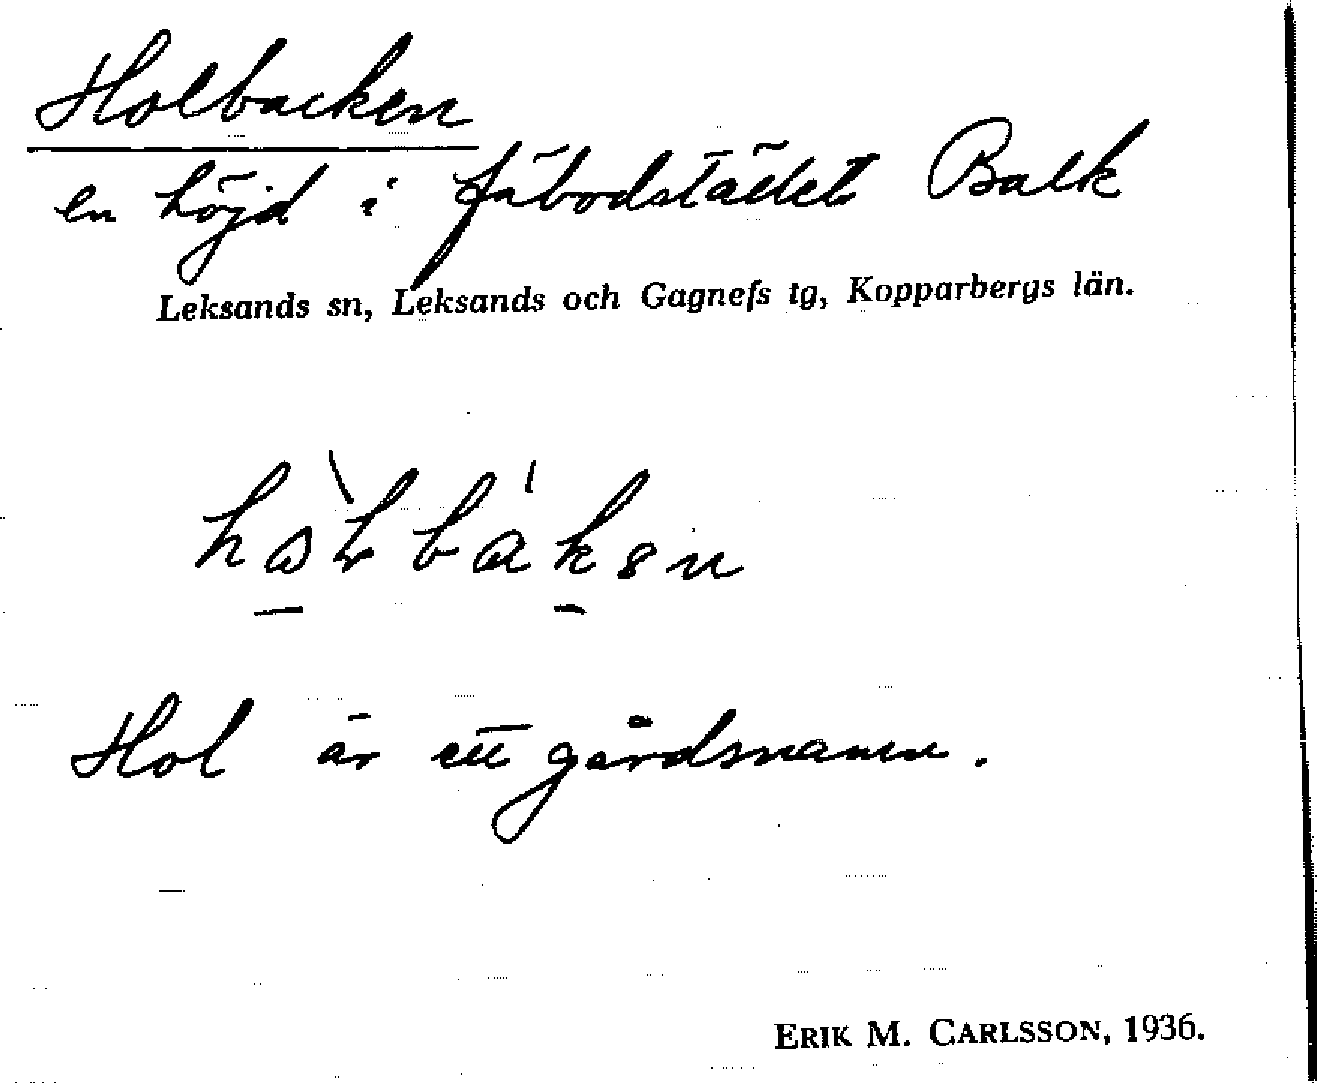 Holbacken
en höjd i fäbodstället Balk
Leksands sn, Leksands och Gagnefs tg, Kopparbergs län.
Hol är ett gårdsnamn.
ERIK M. CARLSSON, 1936.